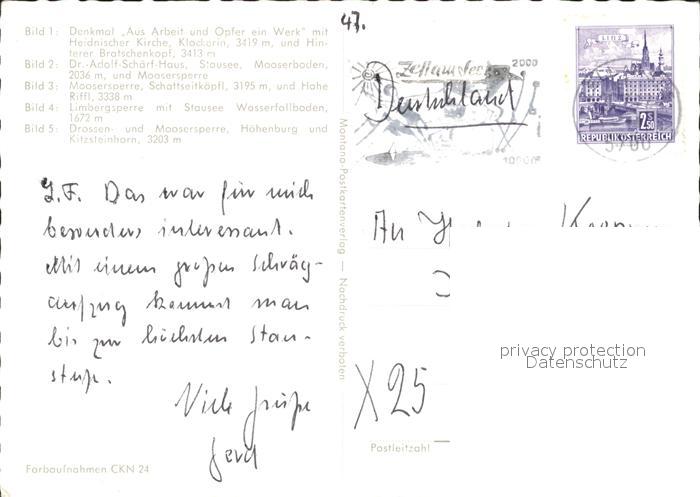 Bild 1: Denkmal „Aus Arbeit und Opfer ein Werk" mit
Heidnischer Kirche, Klockerin, 3419 m, und Hin-
terer Bratschenkopf, 3413 m
Bild 2: Dr.-Adolf-Schärf-Haus, Stausee, Mooserboden,
2036 m, und Moosersperre
Bild 3: Moosersperre, Schattseitköpfl, 3195 m, und Hohe
Riffl, 3338 m
Bild 4: Limbergsperre mit Stausee Wasserfallboden,
1672 m
Bild 5: Drossen- und Moosersperre, Höhenburg und
Kitzsteinhorn, 3203 m
47.
Zell am See
2000
Deutschland
LINZ
2.50
REPUBLIK ÖSTERREICH
5700
Montana-Postkartenverlag — Nachdruck verboten
L.F. Das war für mich
besonders interessant.
Mit einem großen Schräg-
aufzug kommt man
bis zur höchsten Stau-
stufe.
Viele Grüße
Gerd
An
X 25
privacy protection
Datenschutz
Postleitzahl
Farbaufnahmen CKN 24